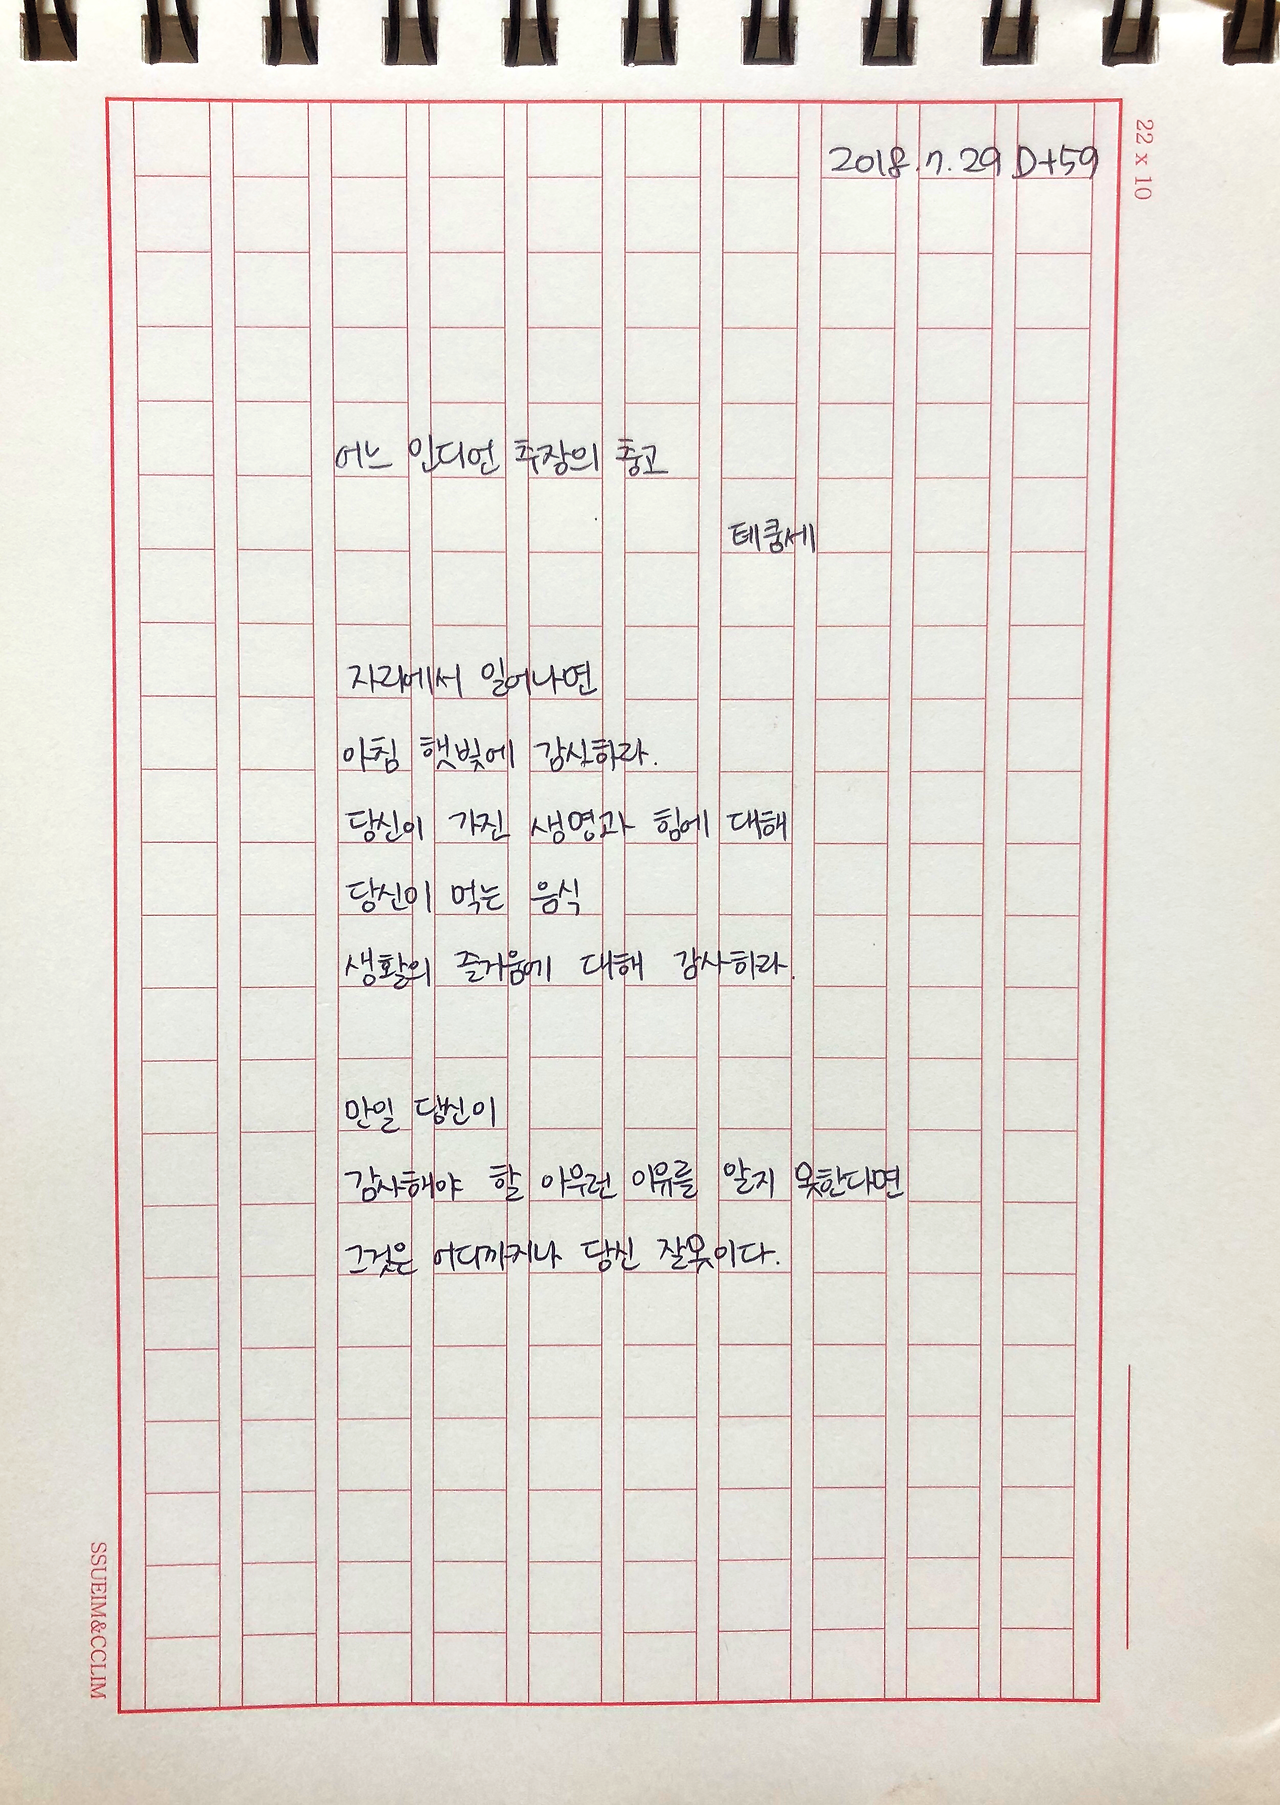 22 x 10
2018.7.29 D+59
어느 인디언 추장의 충고
테쿰세
자리에서 일어나면
아침 햇빛에 감사하라.
당신이 가진 생명과 힘에 대해
당신이 먹는 음식
생활의 즐거움에 대해 감사하라.
만일 당신이
감사해야 할 아무런 이유를 알지 못한다면
그것은 어디까지나 당신 잘못이다.
SSUEIM&CCLIM